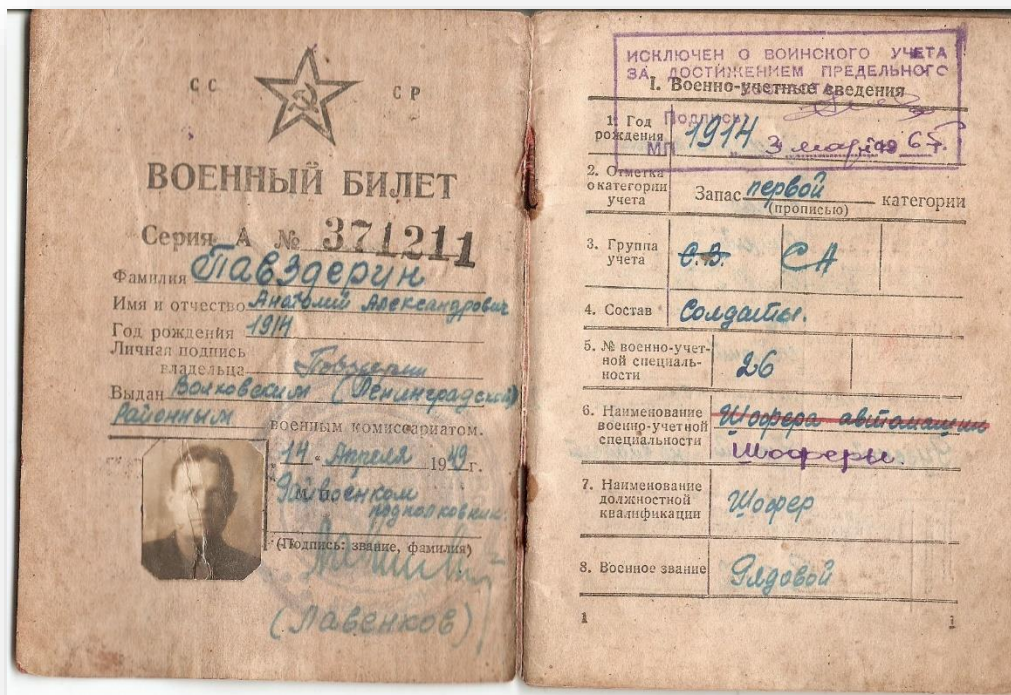 СС СР
ВОЕННЫЙ БИЛЕТ
Серия А № 371211
Фамилия Павздерин
Имя и отчество Анатолий Александрович
Год рождения 1914
Личная подпись
владельца
Выдан Волховским (Ленинградской)
районным
военным комиссариатом.
"14" Апреля 1949 г.
М. П. Райвоенком
подполковник
(Подпись: звание, фамилия)
(Лавенков)
ИСКЛЮЧЕН О ВОИНСКОГО УЧЕТА
ЗА ДОСТИЖЕНИЕМ ПРЕДЕЛЬНОГО
ВОЗРАСТА
Подпись
МП 3 марта 1965 г.
I. Военно-учетные сведения
1. Год
рождения 1914
2. Отметка
о категории
учета Запас первой категории
(прописью)
3. Группа
учета С.В. СА
4. Состав Солдаты.
5. № военно-учет-
ной специаль-
ности 26
6. Наименование
военно-учетной
специальности Шофера автомашин
Шоферы.
7. Наименование
должностной
квалификации Шофер
8. Военное звание Рядовой
1 1